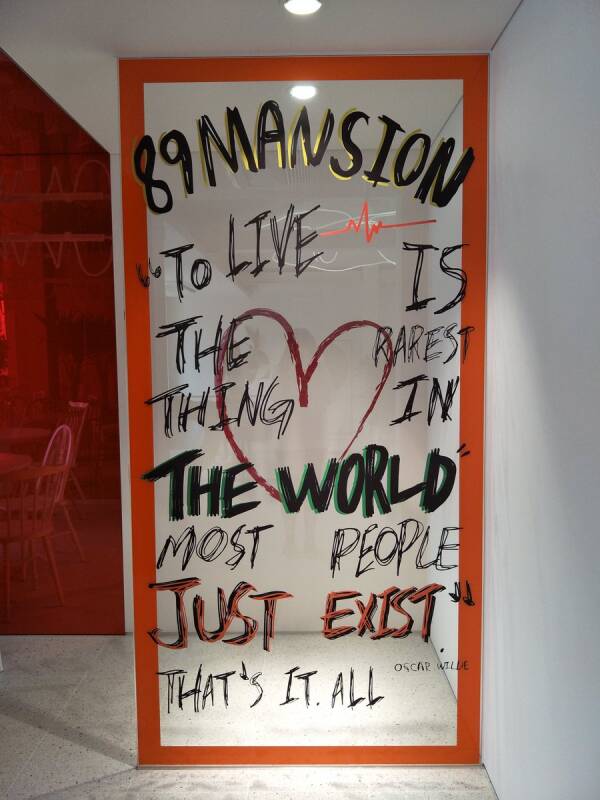 89 MANSION
“TO LIVE IS
THE RAREST
THING IN
THE WORLD”
MOST PEOPLE
JUST EXIST.”
OSCAR WILDE
THAT'S IT. ALL